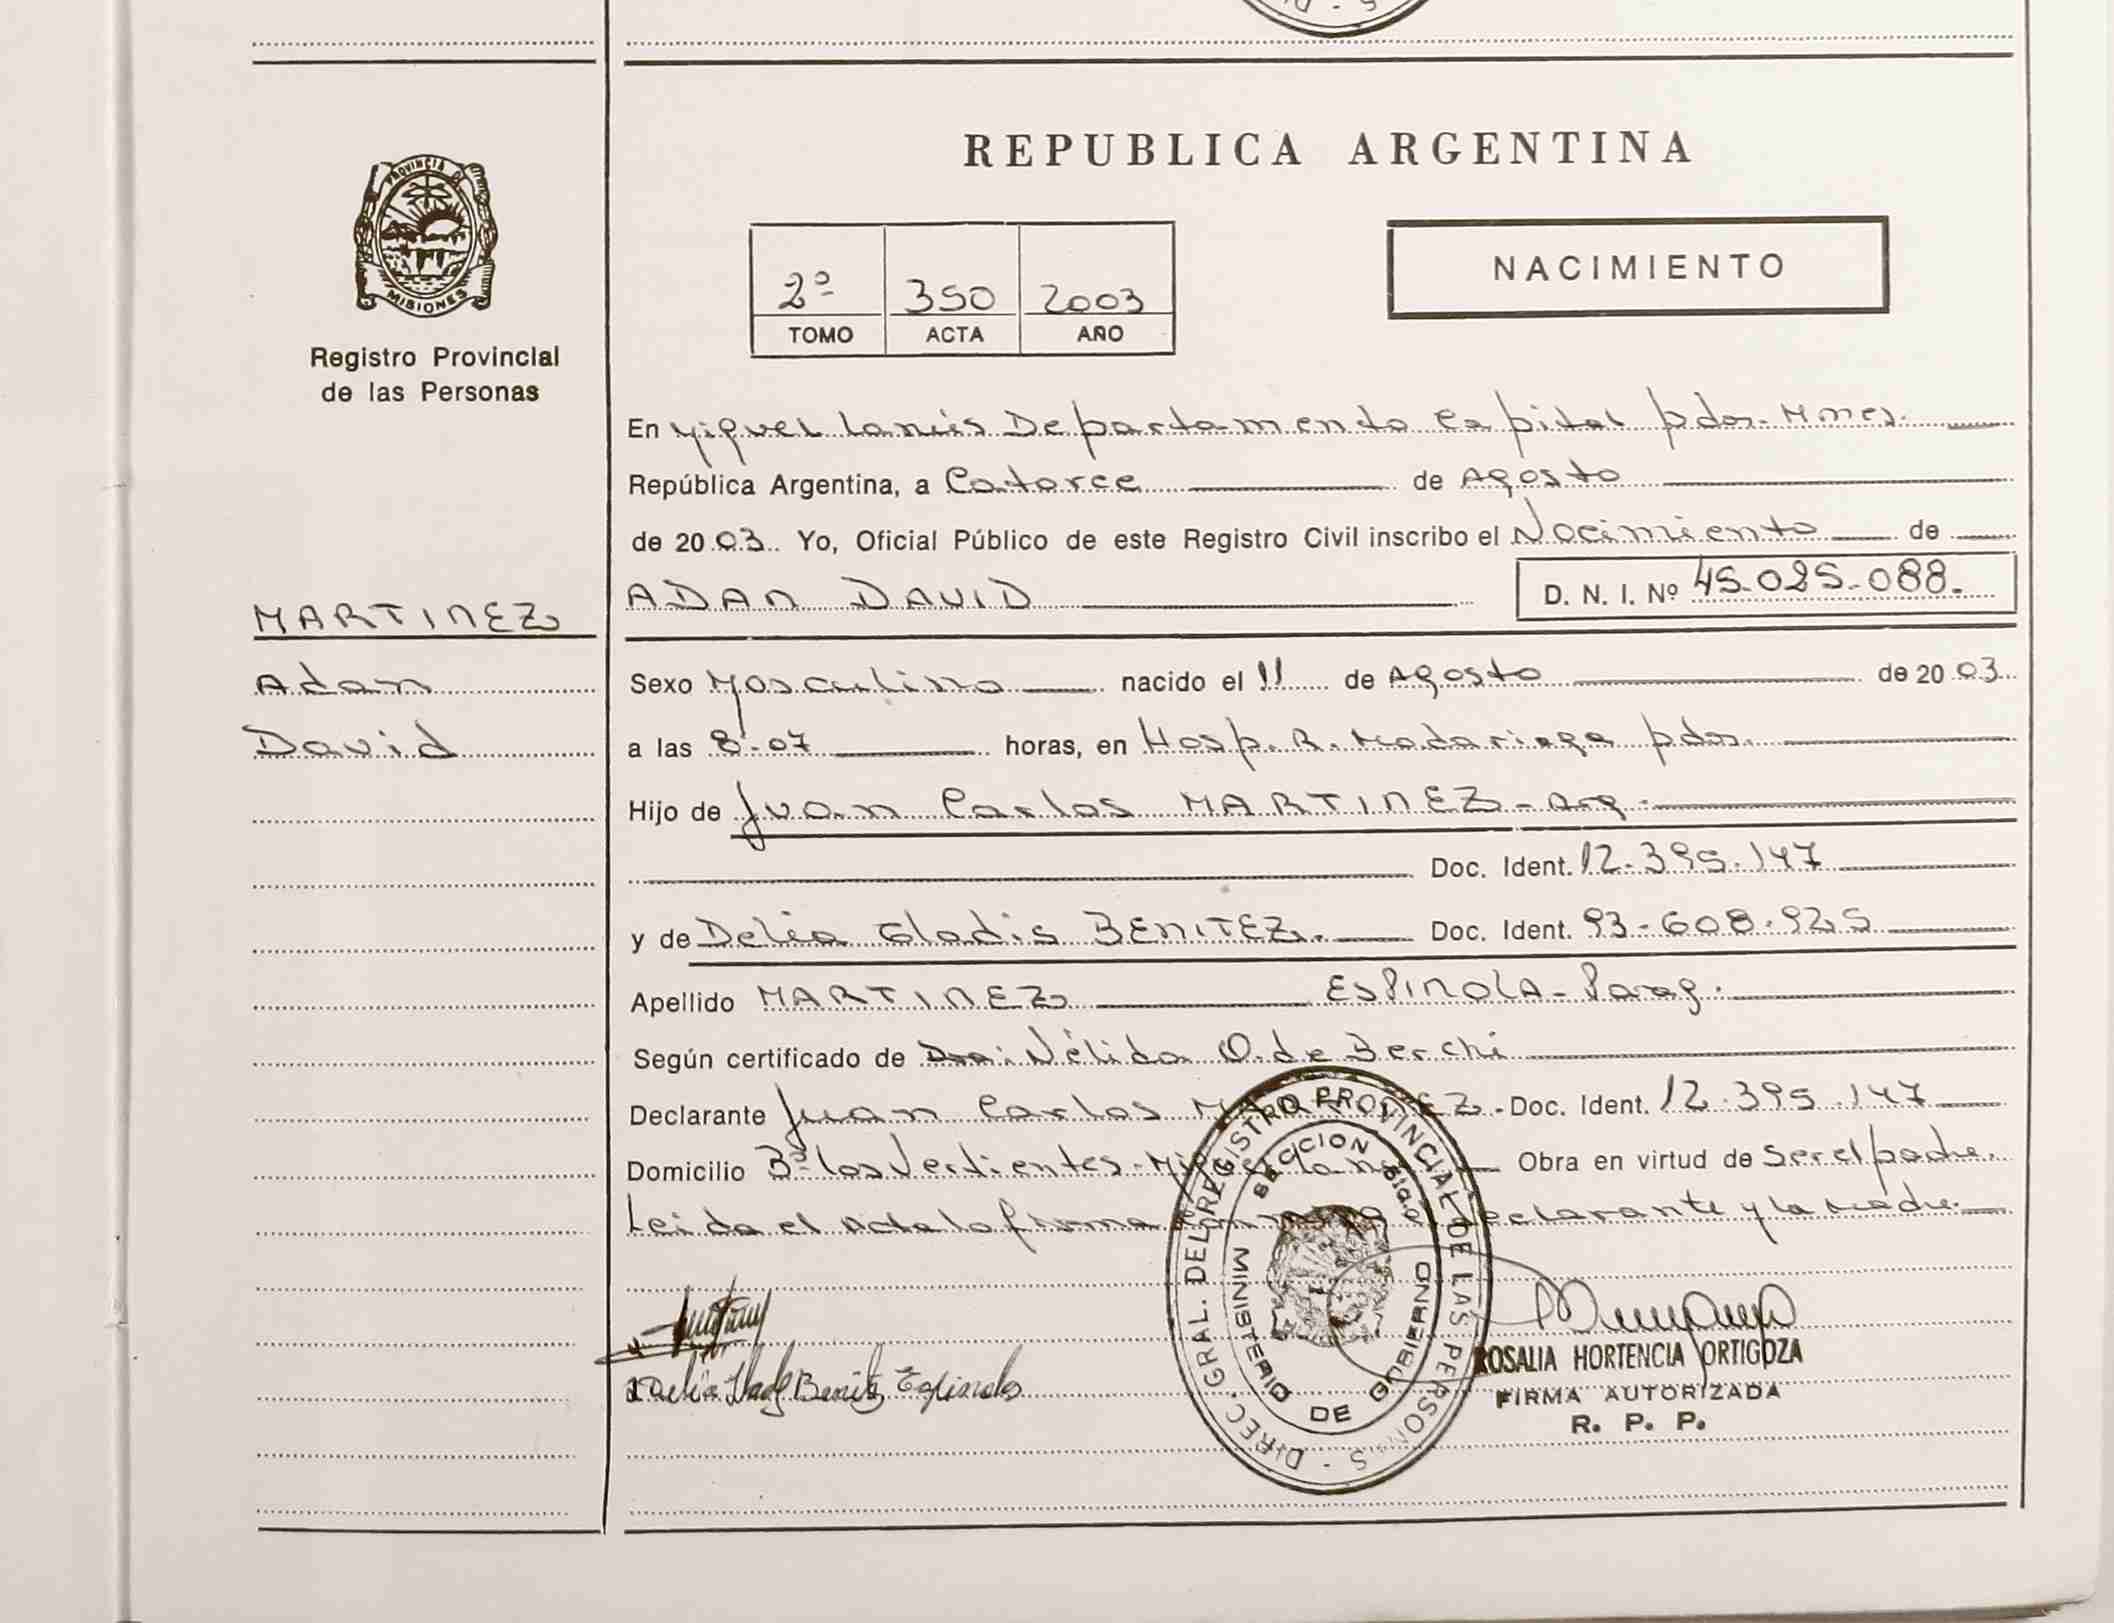 REPUBLICA ARGENTINA
PROVINCIA DE MISIONES
Registro Provincial
de las Personas
2º 350 2003
TOMO ACTA AÑO
NACIMIENTO
En Miguel Lanús Departamento Capital pdas. Mnes.
República Argentina, a Catorce de Agosto
de 2003. Yo, Oficial Público de este Registro Civil inscribo el Nacimiento de
MARTINEZ
Adan
David
ADAN DAVID D. N. I. Nº 45.025.088.
Sexo Masculino nacido el 11 de Agosto de 2003
a las 8-07 horas, en Hosp. R. Madariaga pdas.
Hijo de Juan Carlos MARTINEZ - Arg.
Doc. Ident. 12.395.147
y de Delia Gladis BENITEZ. Doc. Ident. 93-608.925
Apellido MARTINEZ ESPINOLA - Parag.
Según certificado de Nélida O. de Berchi
Declarante Juan Carlos MARTINEZ - Doc. Ident. 12.395.147
Domicilio Bº Los Vertientes - Miguel Lanús Obra en virtud de Ser el padre.
Leida el Acta la firma declarante y la Madre.
DIREC. GRAL. DEL REGISTRO PROVINCIAL DE LAS PERSONAS
SECCION
MINISTERIO DE GOBIERNO
Delia Benitez Espinola
ROSALIA HORTENCIA ORTIGOZA
FIRMA AUTORIZADA
R. P. P.